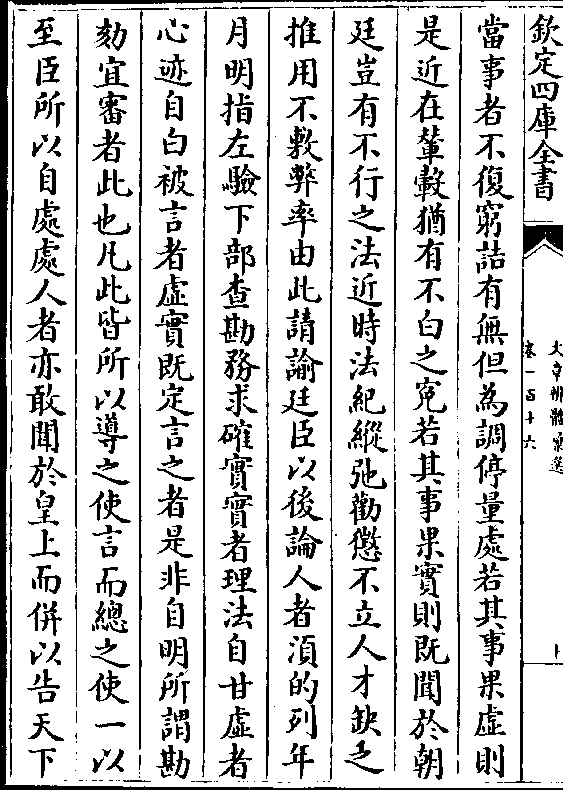 欽定四庫全書
文章辨體彙選
卷一百十六
當事者不復窮詰有無但為調停量處若其事果虛則
是近在輦轂猶有不白之寃若其事果實則既聞於朝
廷豈有不行之法近時法紀縱弛勸懲不立人才缺乏
推用不敷弊率由此請諭廷臣以後論人者湏的列年
月明指左驗下部查勘務求確實實者理法自甘虛者
心迹自白被言者虛實既定言之者是非自明所謂勘
劾宜審者此也凡此皆所以導之使言而總之使一以
至臣所以自處處人者亦敢聞於皇上而併以告天下